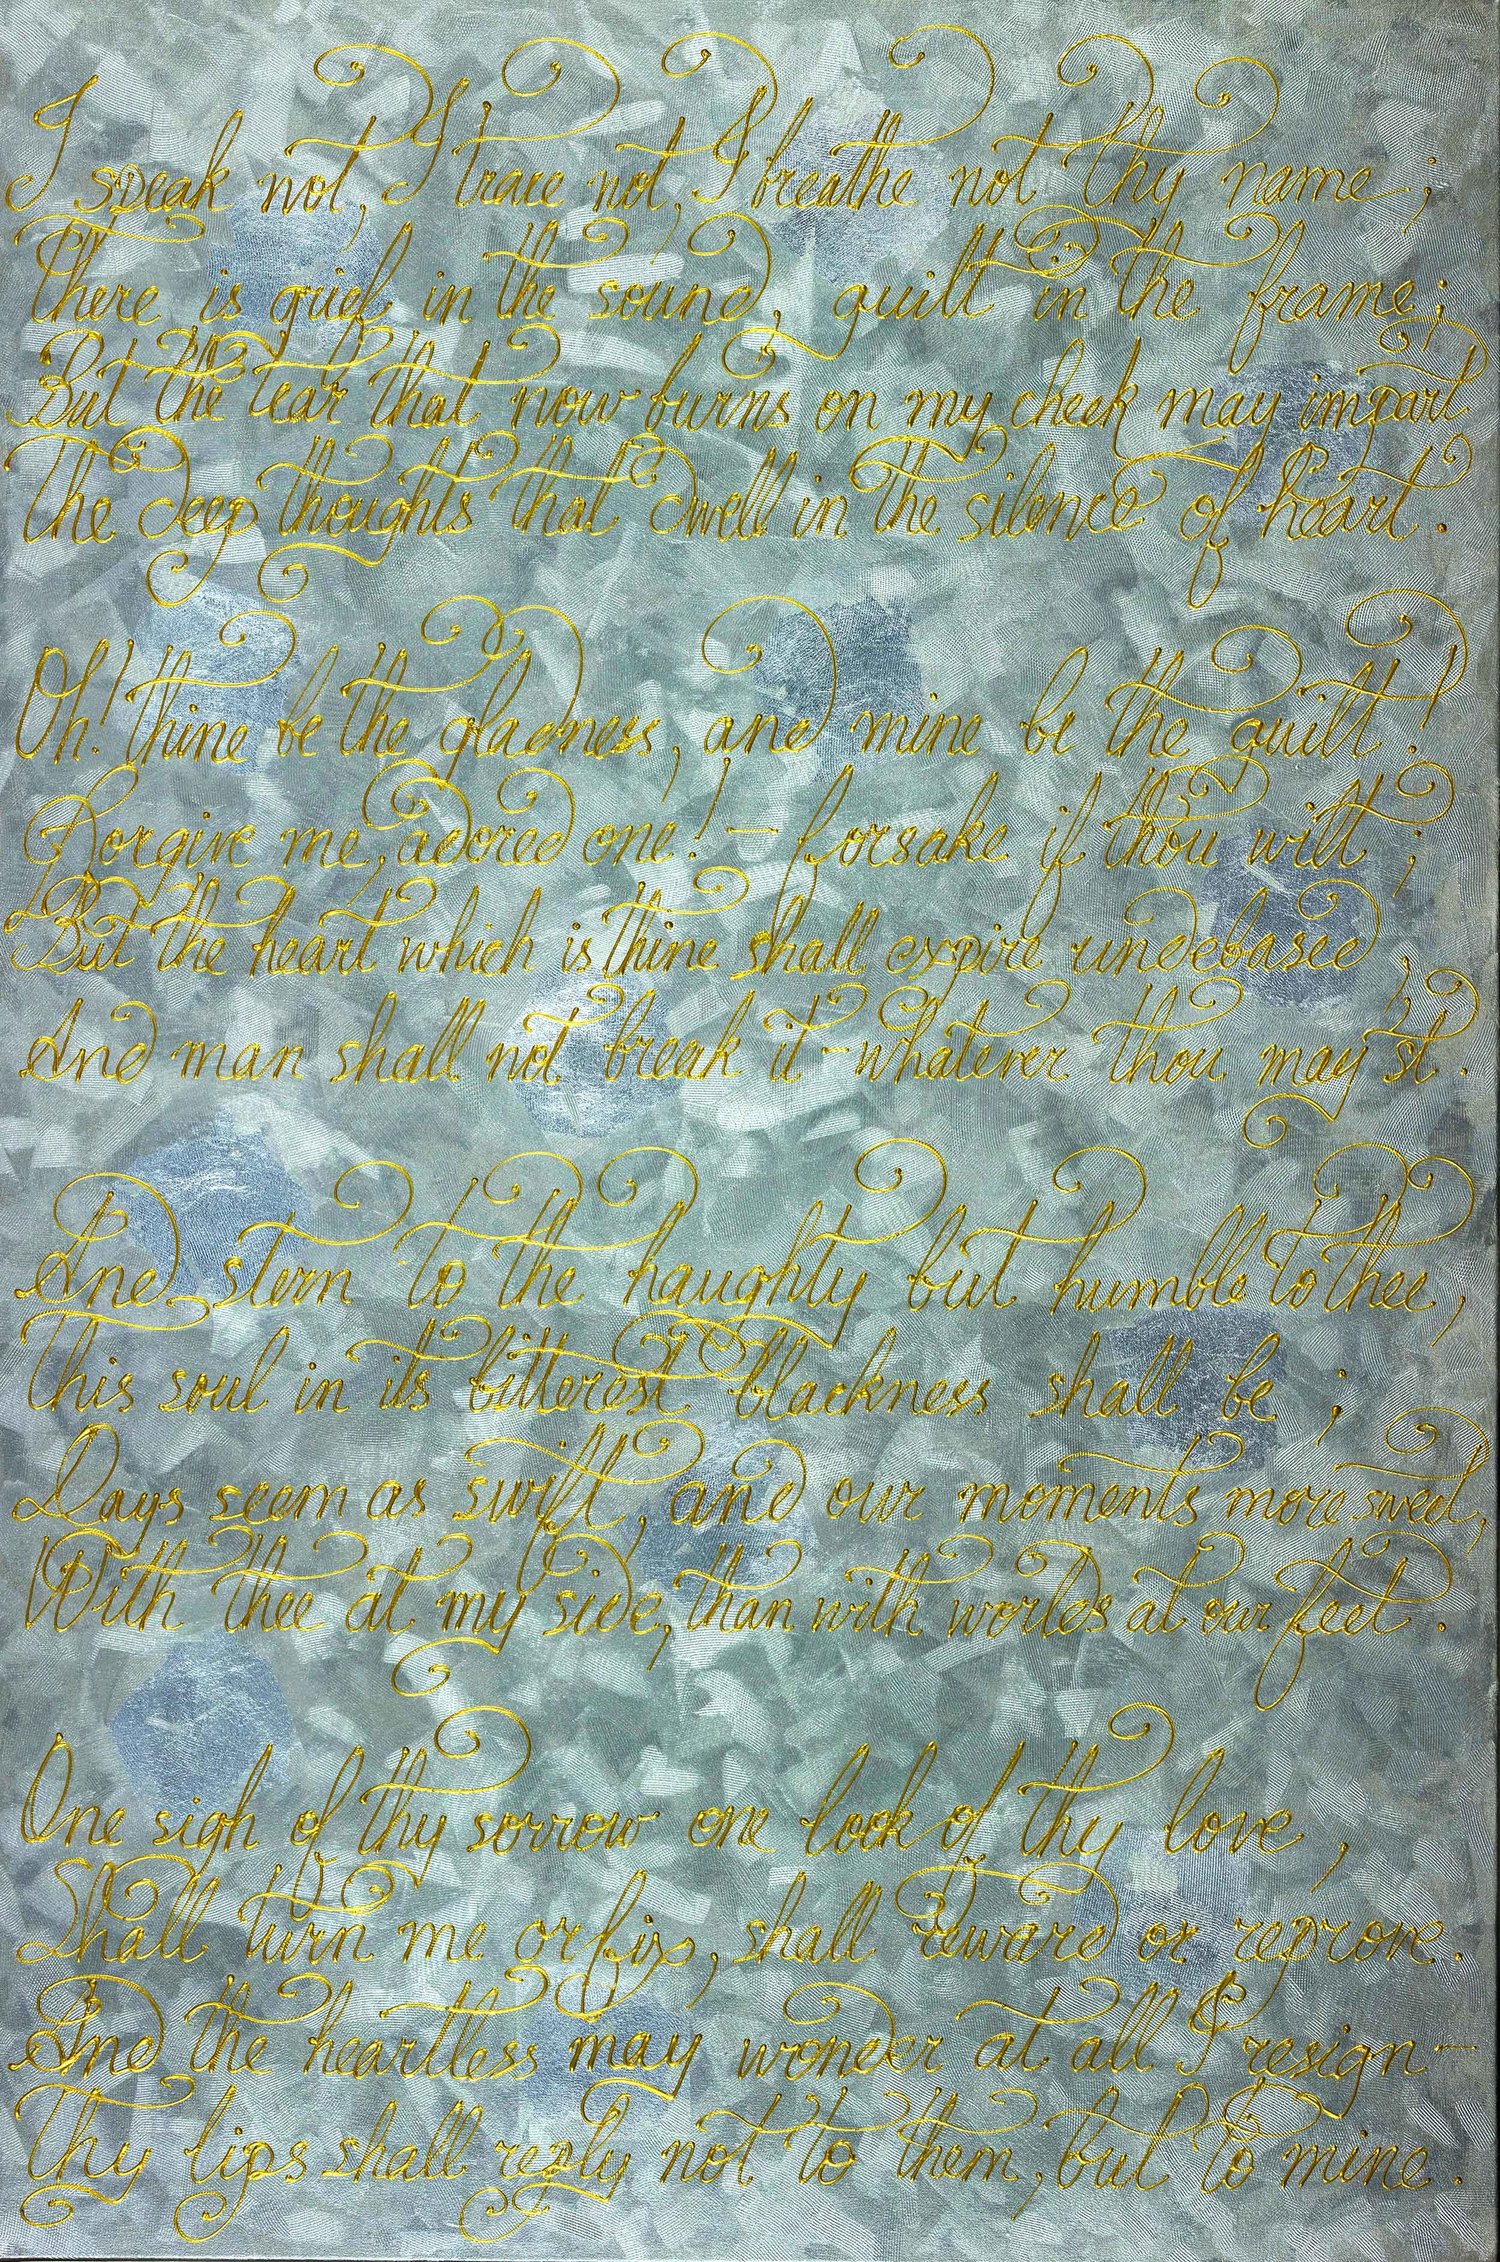 I speak not, I trace not, I breathe not thy name;
There is grief in the sound, guilt in the frame;
But the tear that now burns on my cheek may impart
The deep thoughts that dwell in the silence of heart.
Oh! thine be the gladness, and mine be the guilt!
Forgive me, adored one! – forsake if thou wilt;
But the heart which is thine shall expire undebased,
And man shall not break it – whatever thou may'st.
And stern to the haughty but humble to thee,
This soul in its bitterest blackness shall be;
Days seem as swift, and our moments more sweet,
With thee at my side, than with worlds at our feet.
One sigh of thy sorrow one look of thy love,
Shall turn me or fix, shall reward or reprove.
And the heartless may wonder at all I resign –
Thy lips shall reply not to them, but to mine.